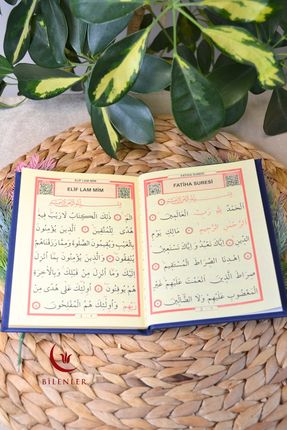 FATİHA SURESİ
FATİHA SURESİ
الْحَمْدُ لِلّٰهِ رَبِّ الْعَالَمِينَ
الرَّحْمٰنِ الرَّحِيمِ مَالِكِ يَوْمِ
الدِّينِ اِيَّاكَ نَعْبُدُ وَاِيَّاكَ نَسْتَعِينُ
اِهْدِنَا الصِّرَاطَ الْمُسْتَقِيمَ
صِرَاطَ الَّذِينَ اَنْعَمْتَ عَلَيْهِمْ غَيْرِ
الْمَغْضُوبِ عَلَيْهِمْ وَلَا الضَّالِّينَ
ELİF LAM MİM
ELİF LAM MİM
الٓمٓ ذٰلِكَ الْكِتَابُ لَا رَيْبَ فِيهِ
هُدًى لِلْمُتَّقِينَ اَلَّذِينَ يُؤْمِنُونَ
بِالْغَيْبِ وَيُقِيمُونَ الصَّلٰوةَ وَمِمَّا رَزَقْنَاهُمْ
يُنْفِقُونَ وَالَّذِينَ يُؤْمِنُونَ بِمَا اُنْزِلَ
اِلَيْكَ وَمَا اُنْزِلَ مِنْ قَبْلِكَ وَبِالْاٰخِرَةِ
هُمْ يُوقِنُونَ اُولٰئِكَ عَلٰى هُدًى مِنْ
رَبِّهِمْ وَاُولٰئِكَ هُمُ الْمُفْلِحُونَ
BİLENLER